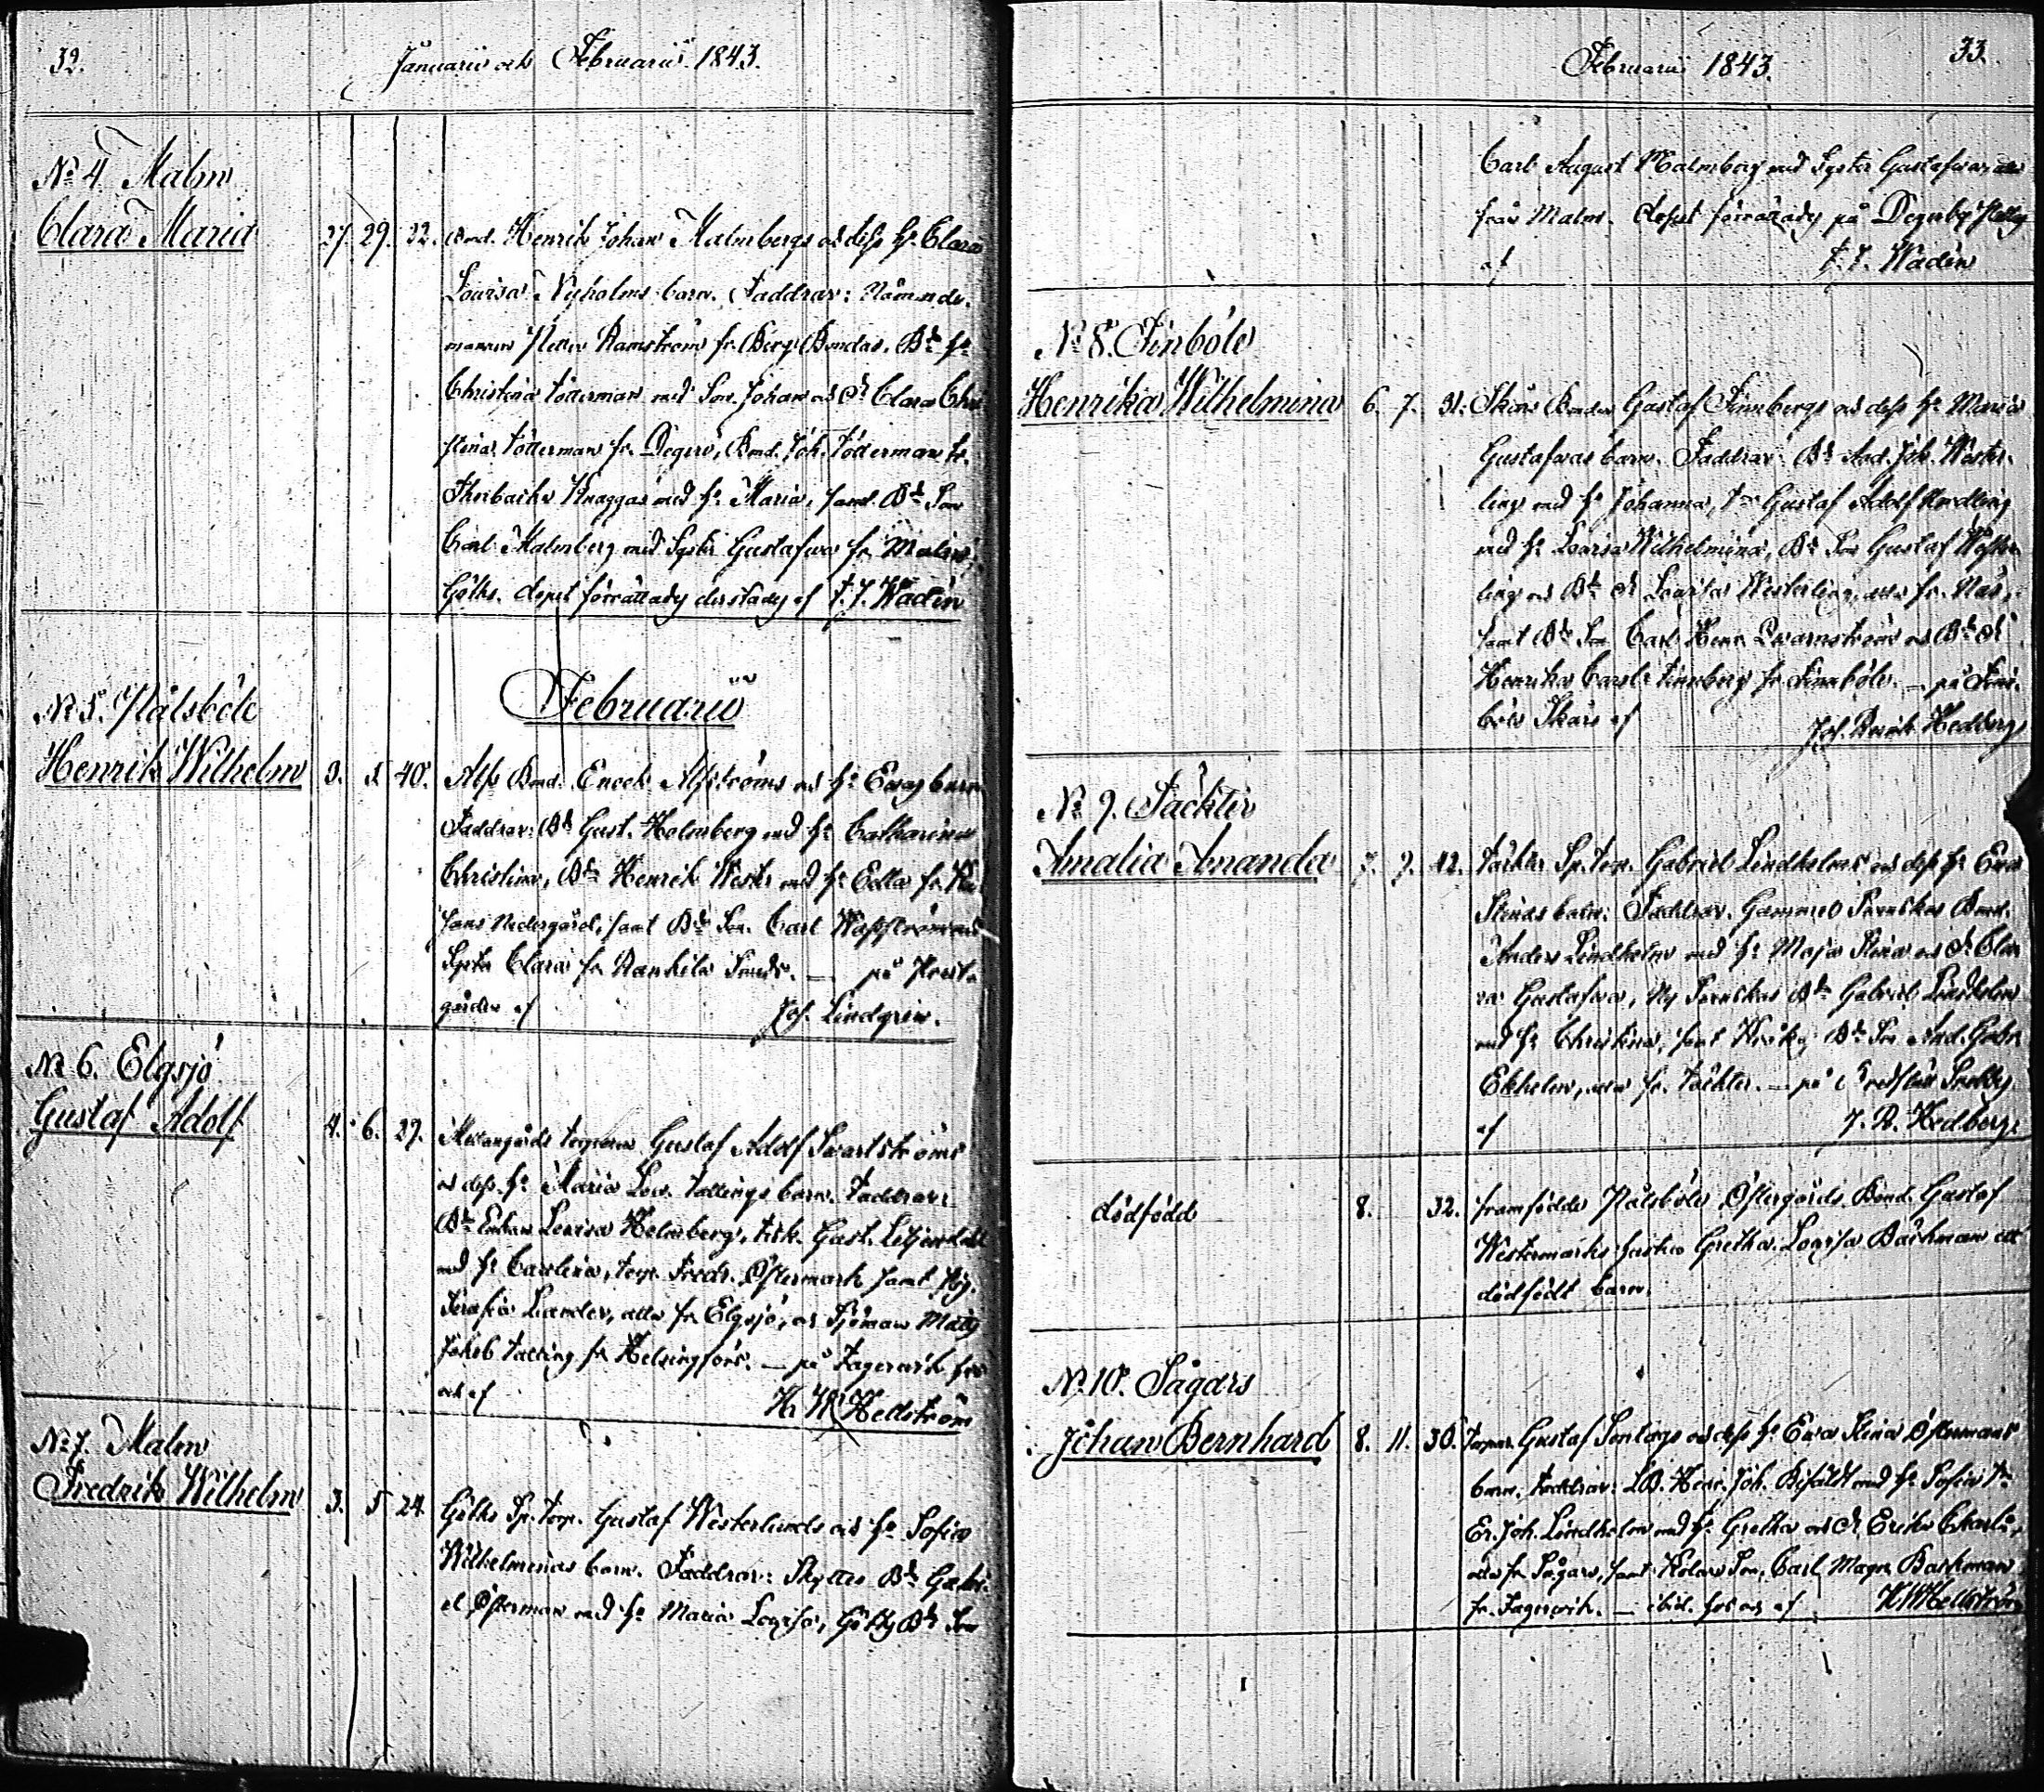 32.
Januarii och Februarii 1843.
No 4 Malm
Clara Maria 27. 29. 32. Bond. Henrik Johan Malmbergs och dess hu Clara
Lovisa Nyholms barn. Faddrar: Nämnde-
mannen Petter Ramström fr. Berg Bondas. Bd hu
Christina Tötterman med Son Johan och Dr Clara Chri-
stina Tötterman fr. Degerö, Bond. Joh. Tötterman fr.
Knaggas med hu Maria, samt Bd Son
Carl Malmberg med Syster Gustafva fr. Malm,
Göths. dopet förrättady derstädy af F. J. Wadén
Februarii
No 5. Pålsböle
Henrik Wilhelm 3. 5. 40. Alfs Bond. Enoch Alfströms och hu Evas barn
Faddrar: Bd Gust. Holmberg med hu Catharina
Christina, Bd Henrik Wester med hu Edla fr.
Nedergård, samt Bd Son Carl
Syster Clara fr. Rankila Sunds. — på Prest-
gården af Joh. Lindgren.
No 6. Elgsjö
Gustaf Adolf 4. 6. 27. Mellangårds torparen Gustaf Adolf Svartströms
och dess hu Maria Lov. Tallings barn. Faddrar:
Bd Enkan Lovisa Holmberg, Gust.
med hu Carolina, torp. Fredr. Östermark samt Pig.
Serafia Lander, alla fr. Elgsjö, och Sjöman Matts
Jakob Talling fr. Helsingfors. — på Fagervik hos
och af K. W. Hellström
No 7. Malm
Fredrik Wilhelm 3. 5 24. Göths Sp. torp. Gustaf Westerlunds och hu Sofia
Wilhelminas barn. Faddrar: Skyttes Bd Gabri-
el Österman med hu Maria Lovisa, Göths Bd Son
Februarii 1843.
33.
Carl August Malmberg med Syster Gustafva, alla
från Malm. dopet förrättady på Degerby
af F. J. Wadén
No 8. Finböle
Henrika Wilhelmina 6. 7. 31. Skärs Bonden Gustaf Finnbergs och dess hu Maria
Gustafvas barn. Faddrar: Bd And. Joh. Wester-
ling med hu Johanna, Gustaf Adolf Nordling
med hu Lovisa Wilhelmina, Bd Son Gustaf Wester-
ling och Bd Dr Lovisa Westerling, alla fr. Näs,
samt Bd Son Carl Henr. Qvarnström och Bd Dr
Henrika Carol. Finnberg fr. Finnböle. — på Finn-
böle Skärs af Joh. Reinh. Hedberg
No 9. Täckter
Amalia Amanda 7. 9. 42. Täckter Sp. torp. Gabriel Lindholms och dess hu Eva
Stinas barn. Faddrar: Gammel Bond.
Anders Lindholm med hu Maja Stina och Dr Cla-
ra Gustafva, Ny Bd Gabriel Lindholm
med hu Christina, samt Bd Son And. Gabr.
Ekholm, alla fr. Täckter. — på
af J. R. Hedberg.
dödfödd 8. 32. framfödde Pålsböle Östergårds Bond. Gustaf
Westermarks hustru Gretha Lovisa Backman ett
dödfödt barn.
No 10. Sågars
Johan Bernhard 8. 11. 30. Torpar. Gustaf Sontags och dess hu Eva Stina Östermans
barn. Faddrar: Henr. Joh. med hu Sofia
Er. Joh. Lindholm med hu Gretha och Dr Erika
alla fr. Sågars, samt Son, Carl Magn. Backman
fr. Fagervik. — ibid. hos och af K. W. Hellström